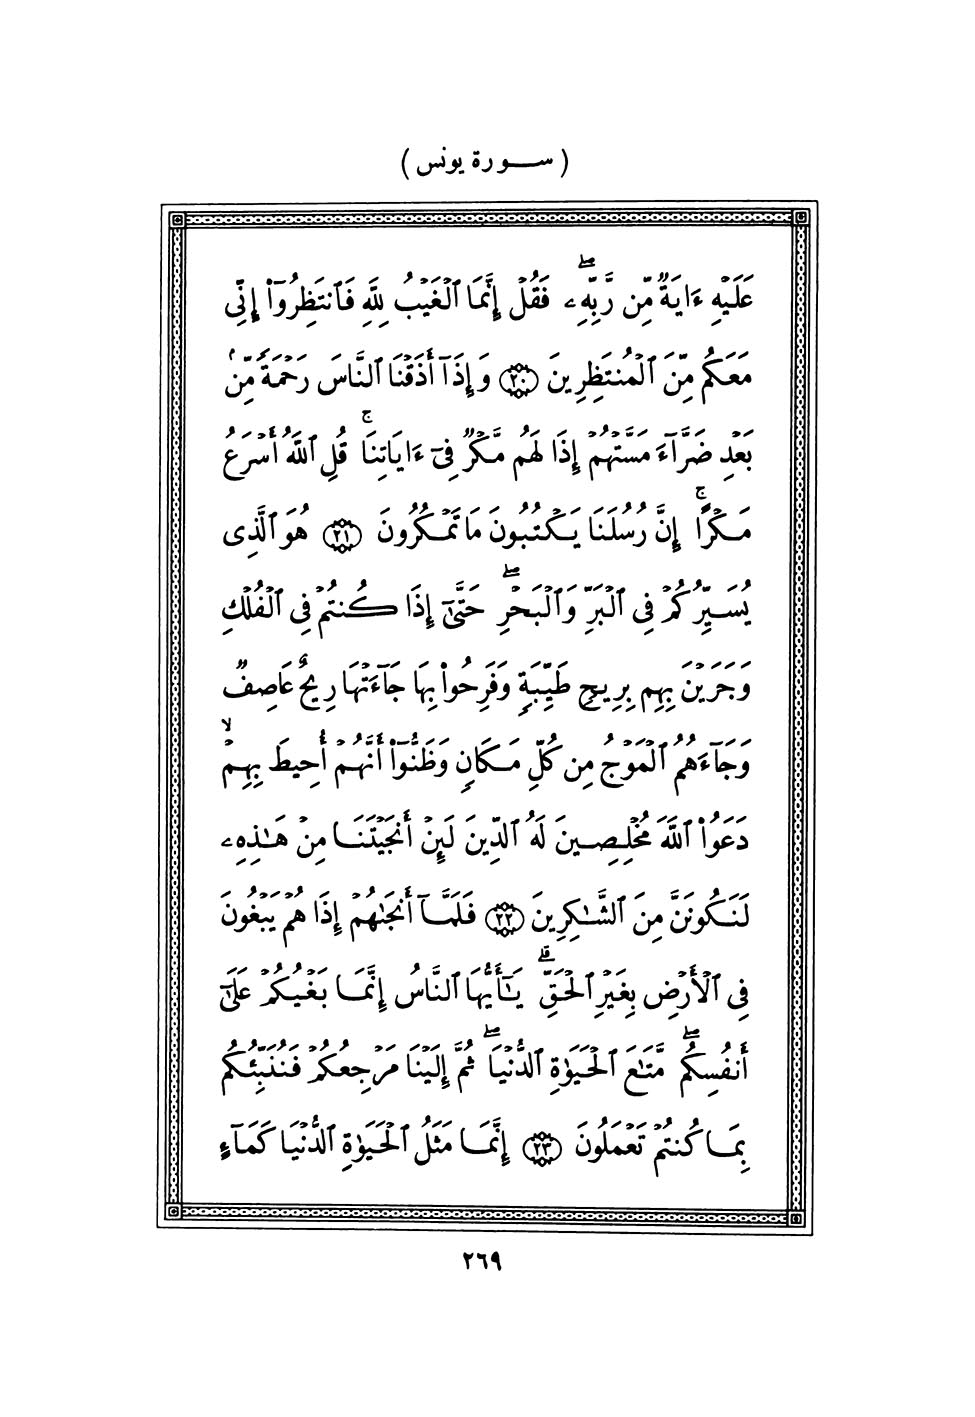 ( ســورة يونس )
عَلَيْهِ ءَايَةٌ مِّن رَّبِّهِۦۖ فَقُلْ إِنَّمَا ٱلْغَيْبُ لِلَّهِ فَٱنتَظِرُوٓا۟ إِنِّى
مَعَكُم مِّنَ ٱلْمُنتَظِرِينَ ٢٠ وَإِذَآ أَذَقْنَا ٱلنَّاسَ رَحْمَةً مِّنۢ
بَعْدِ ضَرَّآءَ مَسَّتْهُمْ إِذَا لَهُم مَّكْرٌ فِىٓ ءَايَاتِنَاۚ قُلِ ٱللَّهُ أَسْرَعُ
مَكْرًاۚ إِنَّ رُسُلَنَا يَكْتُبُونَ مَا تَمْكُرُونَ ٢١ هُوَ ٱلَّذِى
يُسَيِّرُكُمْ فِى ٱلْبَرِّ وَٱلْبَحْرِۖ حَتَّىٰٓ إِذَا كُنتُمْ فِى ٱلْفُلْكِ
وَجَرَيْنَ بِهِم بِرِيحٍ طَيِّبَةٍ وَفَرِحُوا۟ بِهَا جَآءَتْهَا رِيحٌ عَاصِفٌ
وَجَآءَهُمُ ٱلْمَوْجُ مِن كُلِّ مَكَانٍ وَظَنُّوٓا۟ أَنَّهُمْ أُحِيطَ بِهِمْۙ
دَعَوُا۟ ٱللَّهَ مُخْلِصِينَ لَهُ ٱلدِّينَ لَئِنْ أَنجَيْتَنَا مِنْ هَـٰذِهِۦ
لَنَكُونَنَّ مِنَ ٱلشَّـٰكِرِينَ ٢٢ فَلَمَّآ أَنجَىٰهُمْ إِذَا هُمْ يَبْغُونَ
فِى ٱلْأَرْضِ بِغَيْرِ ٱلْحَقِّۗ يَـٰٓأَيُّهَا ٱلنَّاسُ إِنَّمَا بَغْيُكُمْ عَلَىٰٓ
أَنفُسِكُمۖ مَّتَـٰعَ ٱلْحَيَوٰةِ ٱلدُّنْيَاۖ ثُمَّ إِلَيْنَا مَرْجِعُكُمْ فَنُنَبِّئُكُم
بِمَا كُنتُمْ تَعْمَلُونَ ٢٣ إِنَّمَا مَثَلُ ٱلْحَيَوٰةِ ٱلدُّنْيَا كَمَآءٍ
٢٦٩